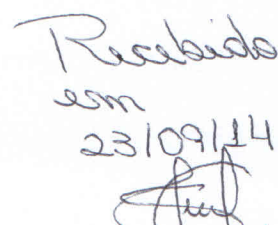 Recebido
em
23/09/14